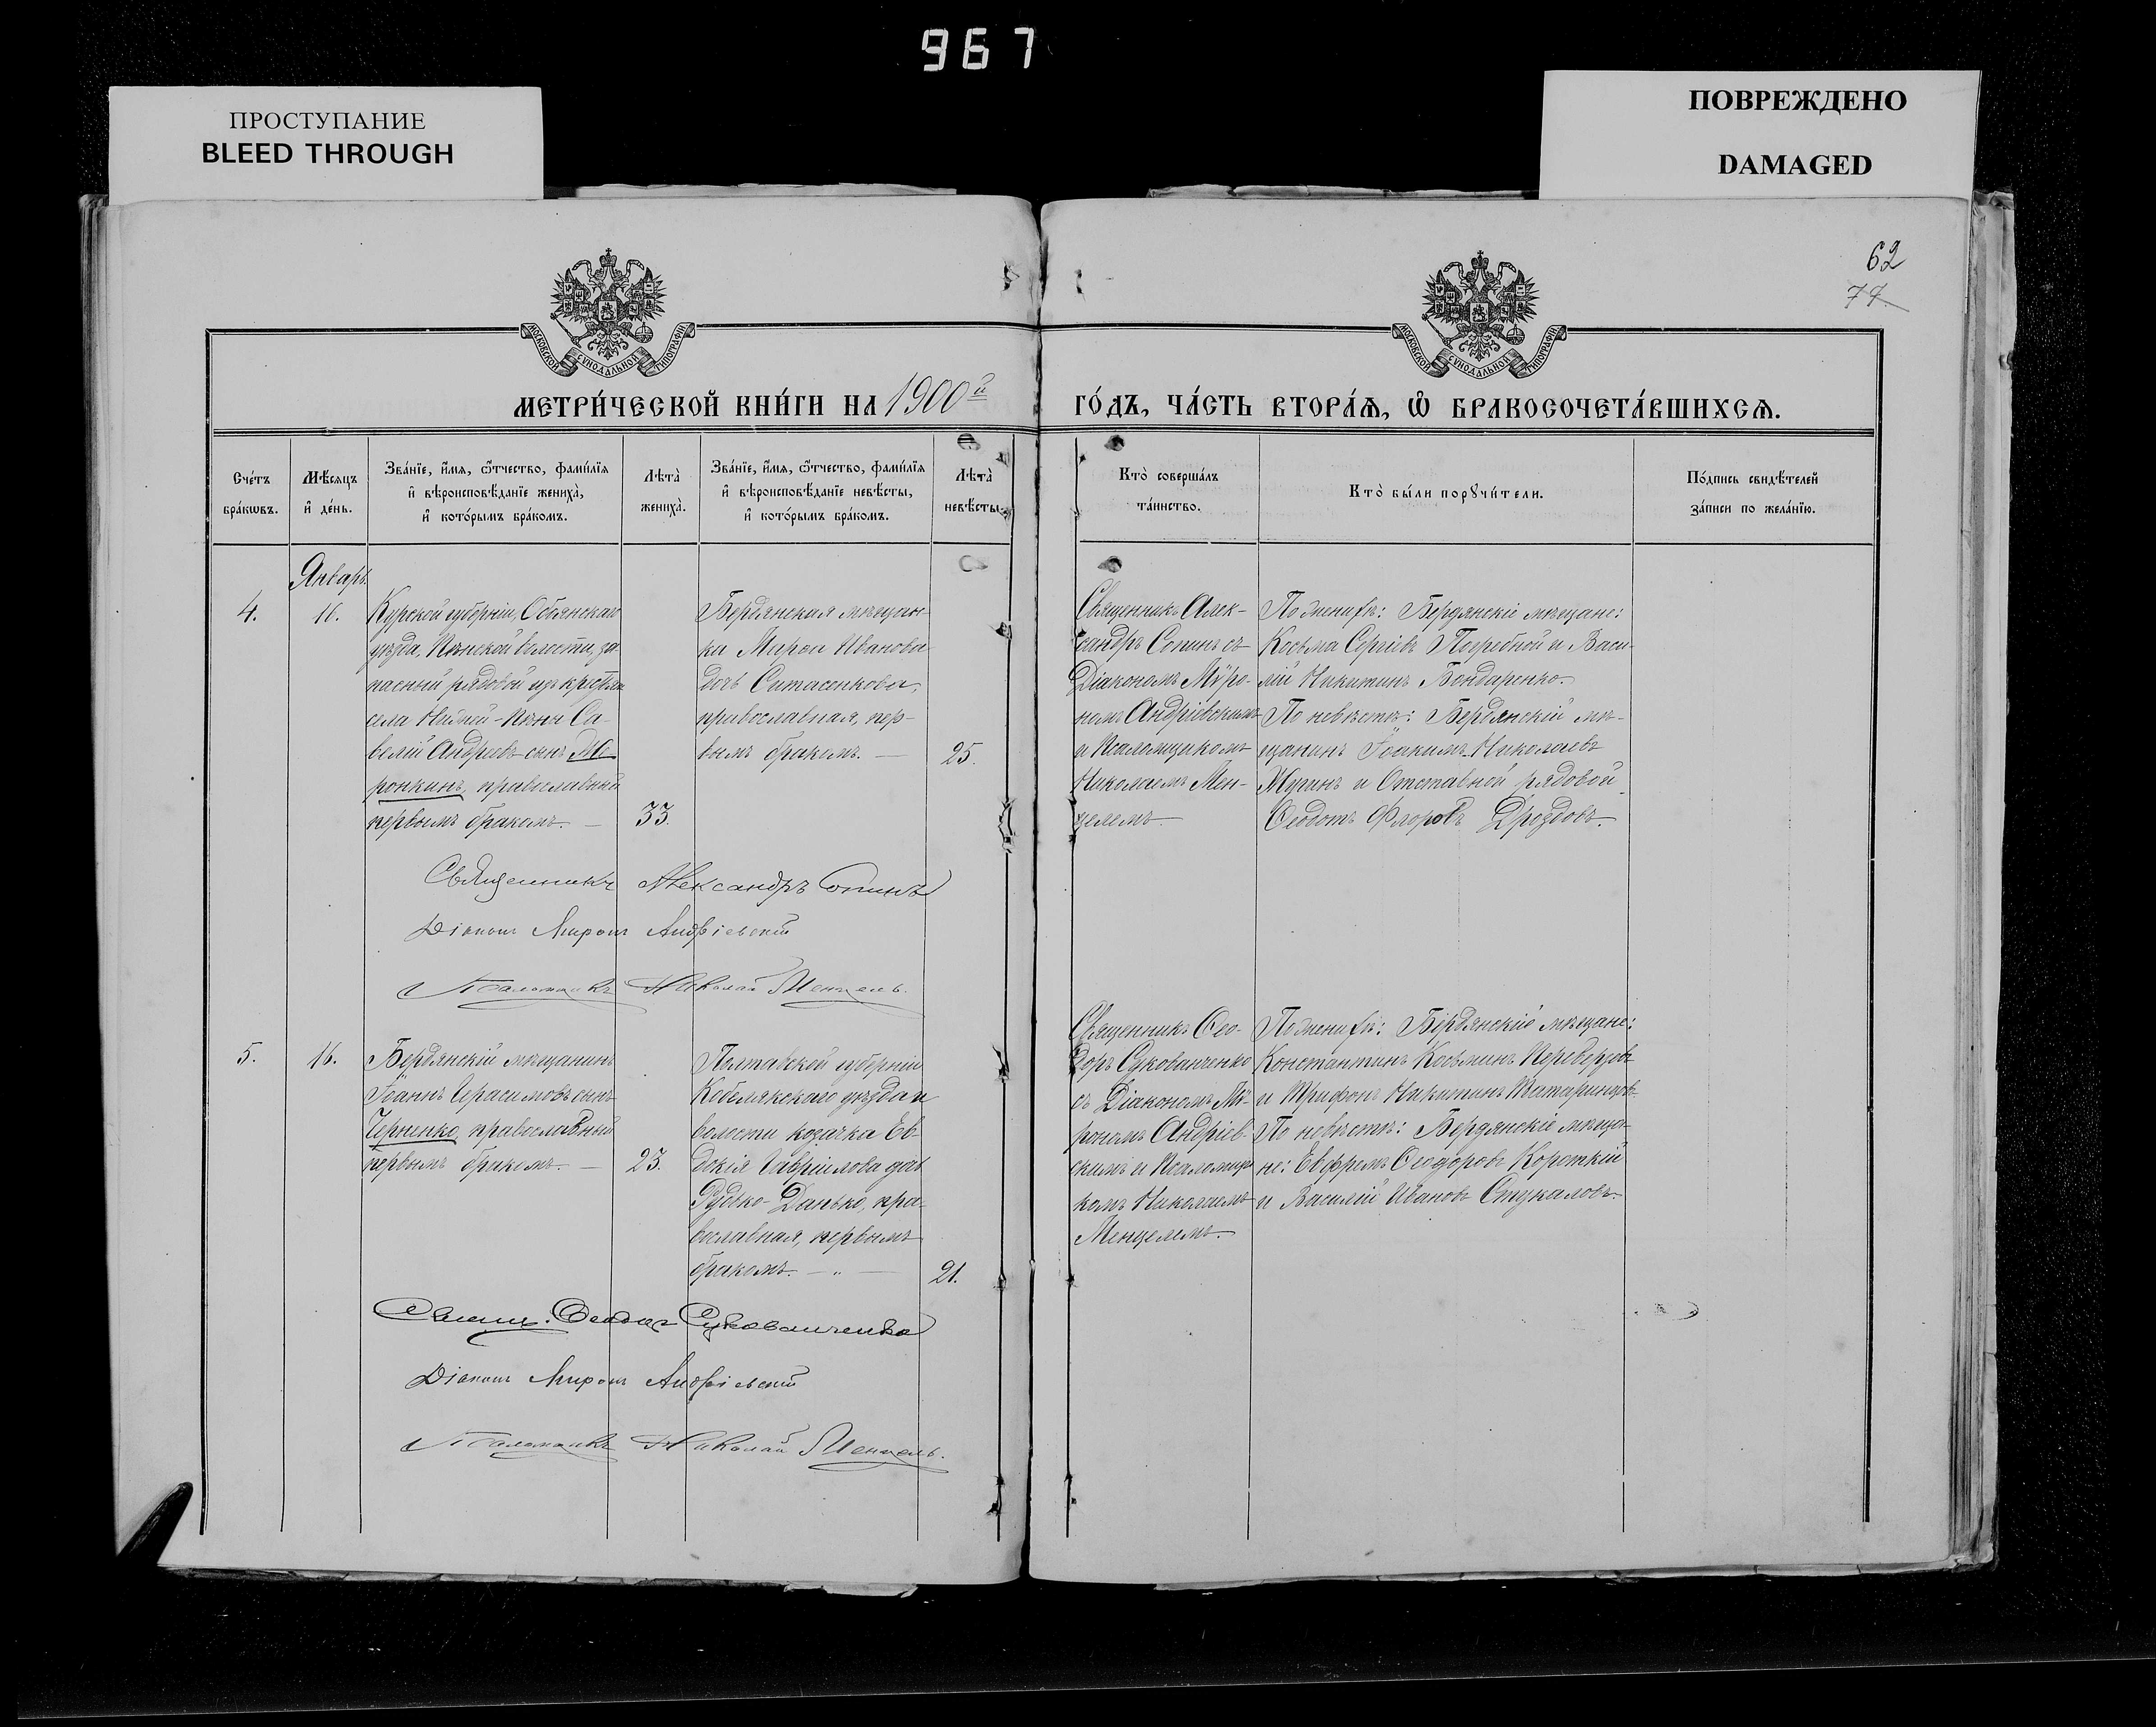 967
ПРОСТУПАНИЕ
BLEED THROUGH
ПОВРЕЖДЕНО
DAMAGED
62
77
МОСКОВСКОЙ СѴНОДАЛЬНОЙ ТИПОГРАФІИ
МОСКОВСКОЙ СѴНОДАЛЬНОЙ ТИПОГРАФІИ
МЕТРИ́ЧЕСКОЙ КНИ́ГИ НА 1900й
ГО́ДЪ, ЧА́СТЬ ВТОРА́Ѧ, Ѽ БРАКОСОЧЕТА́ВШИХСѦ.
Сче́тъ
бра́кωвъ.
Мѣ́сяцъ
и҆ де́нь.
Зва́нїе, и҆́мѧ, ѻ҆́тчество, фами́лїѧ
и҆ вѣроисповѣ́данїе жениха̀,
и҆ кото́рымъ бра́комъ.
Лѣта̀
жениха̀.
Зва́нїе, и҆́мѧ, ѻ҆́тчество, фами́лїѧ
и҆ вѣроисповѣ́данїе невѣ́сты,
и҆ кото́рымъ бра́комъ.
Лѣта̀
невѣ́сты.
Кто̀ соверша́лъ
та́инство.
Кто̀ бы́ли порꙋчи́тели.
По́дпись свидѣ́телей
за́писи по жела́нїю.
Январь
4.
16.
Курской губерніи, Обоянскаго
уѣзда, Пѣнской волости, за
пасный рядовой изъ крестьян
села Нижней-Пѣны Са-
велій Андреевъ сынъ Ме-
ронкинъ, православный
первымъ бракомъ. —
33.
Бердянская мѣщан-
ка Ивановa
дочь Ситасенкова,
православная, пер-
вымъ бракомъ. —
25.
Священникъ Алек-
сандръ Сопинъ съ
Діакономъ Мѵро-
номъ Андріевскимъ
и Псаломщикомъ
Николаемъ Мен-
целемъ.
По женихѣ: Бердянскіе мѣщане:
Косьма Сергіевъ Погребной и Васи-
лій Никитинъ Бондаренко.
По невѣстѣ: Бердянскій мѣ-
щанинъ Іоакимъ Николаевъ
и Отставной рядовой
Ѳеодотъ Флоровъ Дроздовъ.
Священникъ Александръ Сопинъ
Діаконъ Миронъ Андріевскій
Псаломщикъ Николай Менцель.
5.
16.
Бердянскій мѣщанинъ
Іоаннъ Герасимовъ сынъ
Черненко, православный
первымъ бракомъ. —
23.
Полтавской губерніи
Кобелякскаго уѣзда и
волости козачка Ев-
докія Гавріилова дочь
Рудько-Данько, пра-
вославная, первымъ
бракомъ. — „ —
21.
Священникъ Ѳео-
доръ Сукованченко
съ Діакономъ Мѵ-
рономъ Андріев-
скимъ и Псаломщи
комъ Николаемъ
Менцелемъ.
По женихѣ: Бердянскіе мѣщане:
Константинъ Косьминъ Переверзевъ
и Трифонъ Никитинъ Татаринцевъ.
По невѣстѣ: Бердянскіе мѣща-
не: Евфремъ Ѳеодоровъ Короткій
и Василій Ивановъ Стукаловъ.
Священ. Ѳеодоръ Сукованченко
Діаконъ Миронъ Андріевскій
Псаломщикъ Николай Менцель.